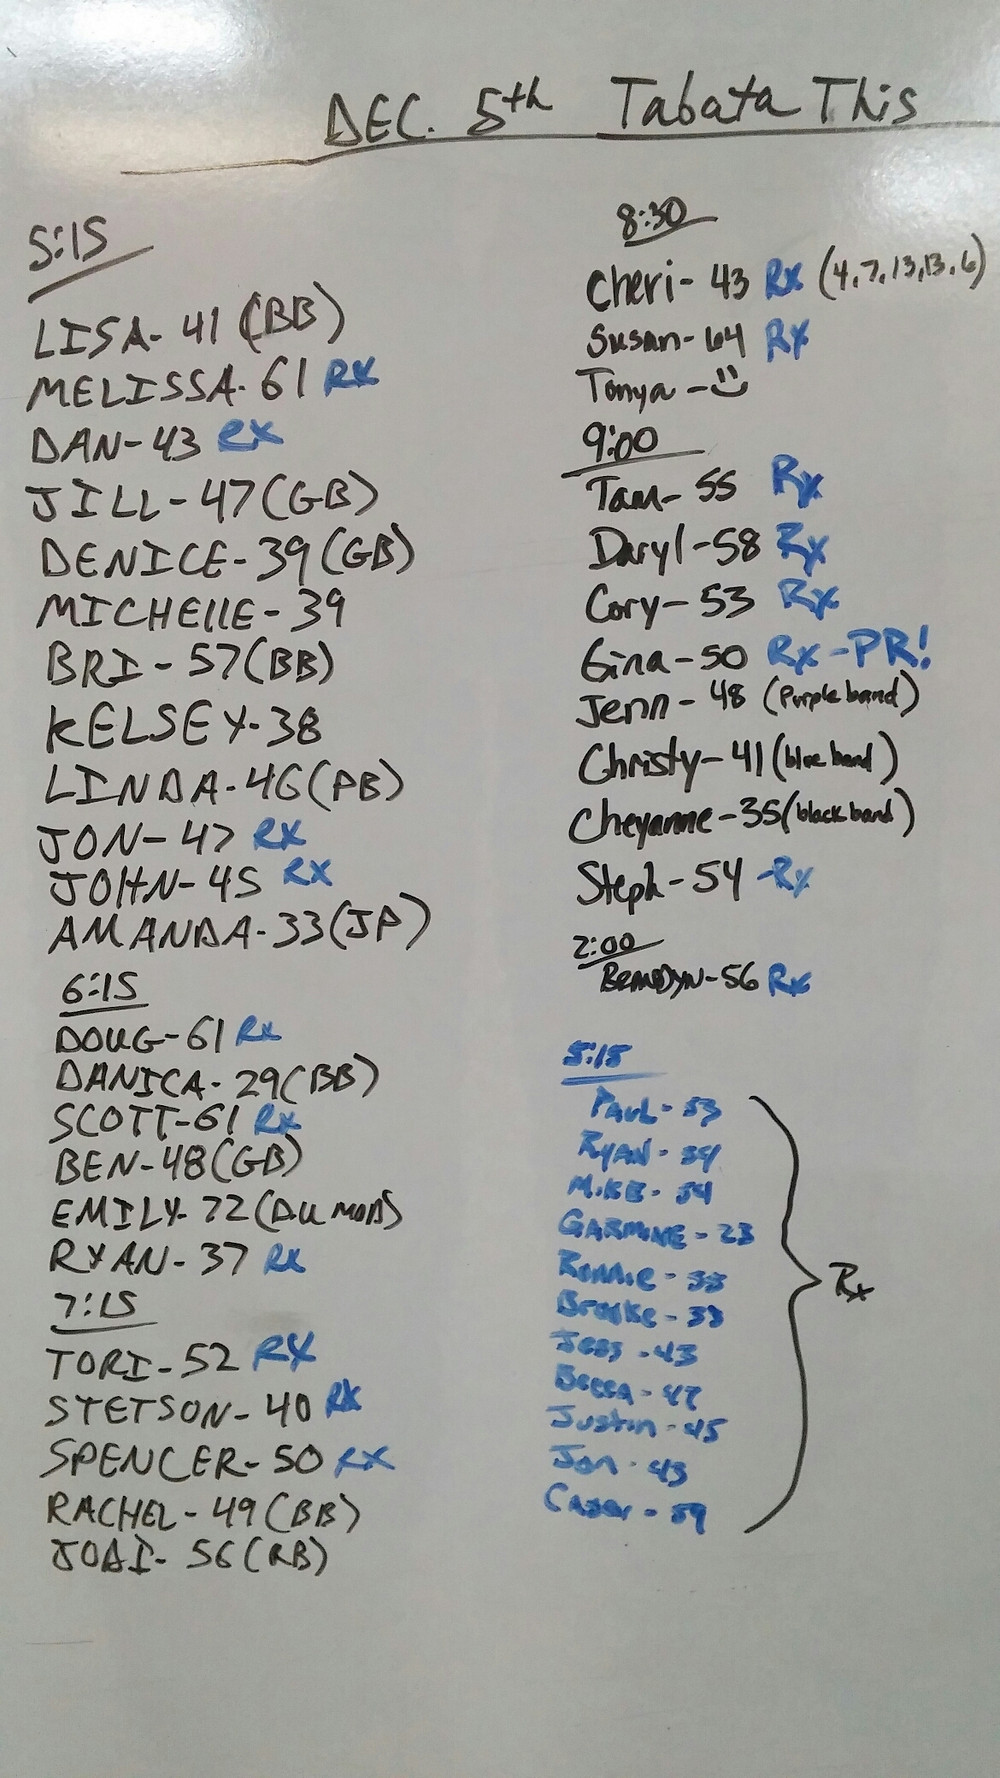 DEC. 5th Tabata This
5:15
LISA- 41 (BB)
MELISSA- 61 RX
DAN- 43 RX
JILL- 47 (GB)
DENICE- 39 (GB)
MICHEllE- 39
BRI - 57 (BB)
KELSEY- 38
LINDA- 46 (PB)
JON- 47 RX
JOHN- 45 RX
AMANDA- 33 (JP)
6:15
DOUG- 61 Rx
DANICA- 29 (BB)
SCOTT- 61 Rx
BEN- 48 (GB)
EMILY- 72 (DU MOD)
RYAN- 37 Rx
7:15
TORI- 52 RX
STETSON- 40 RX
SPENCER- 50 RX
RACHEL- 49 (BB)
JODI- 56 (RB)
8:30
Cheri- 43 Rx (4,7,13,13,6)
Susan- 64 Rx
Tonya -
9:00
Tam- 55 Rx
Daryl- 58 Rx
Cory- 53 Rx
Gina- 50 Rx -PR!
Jenn- 48 (Purple band)
Christy- 41 (blue band)
Cheyanne- 35 (black band)
Steph- 54 -Rx
2:00
BRANDYN- 56 Rx
5:15
PAUL- 53
RYAN-
MIKE-
- 23
Ronnie-
Brooke- 33
Jess - 43
Becca - 47
Justin - 45
Jon - 43
- 59
Rx